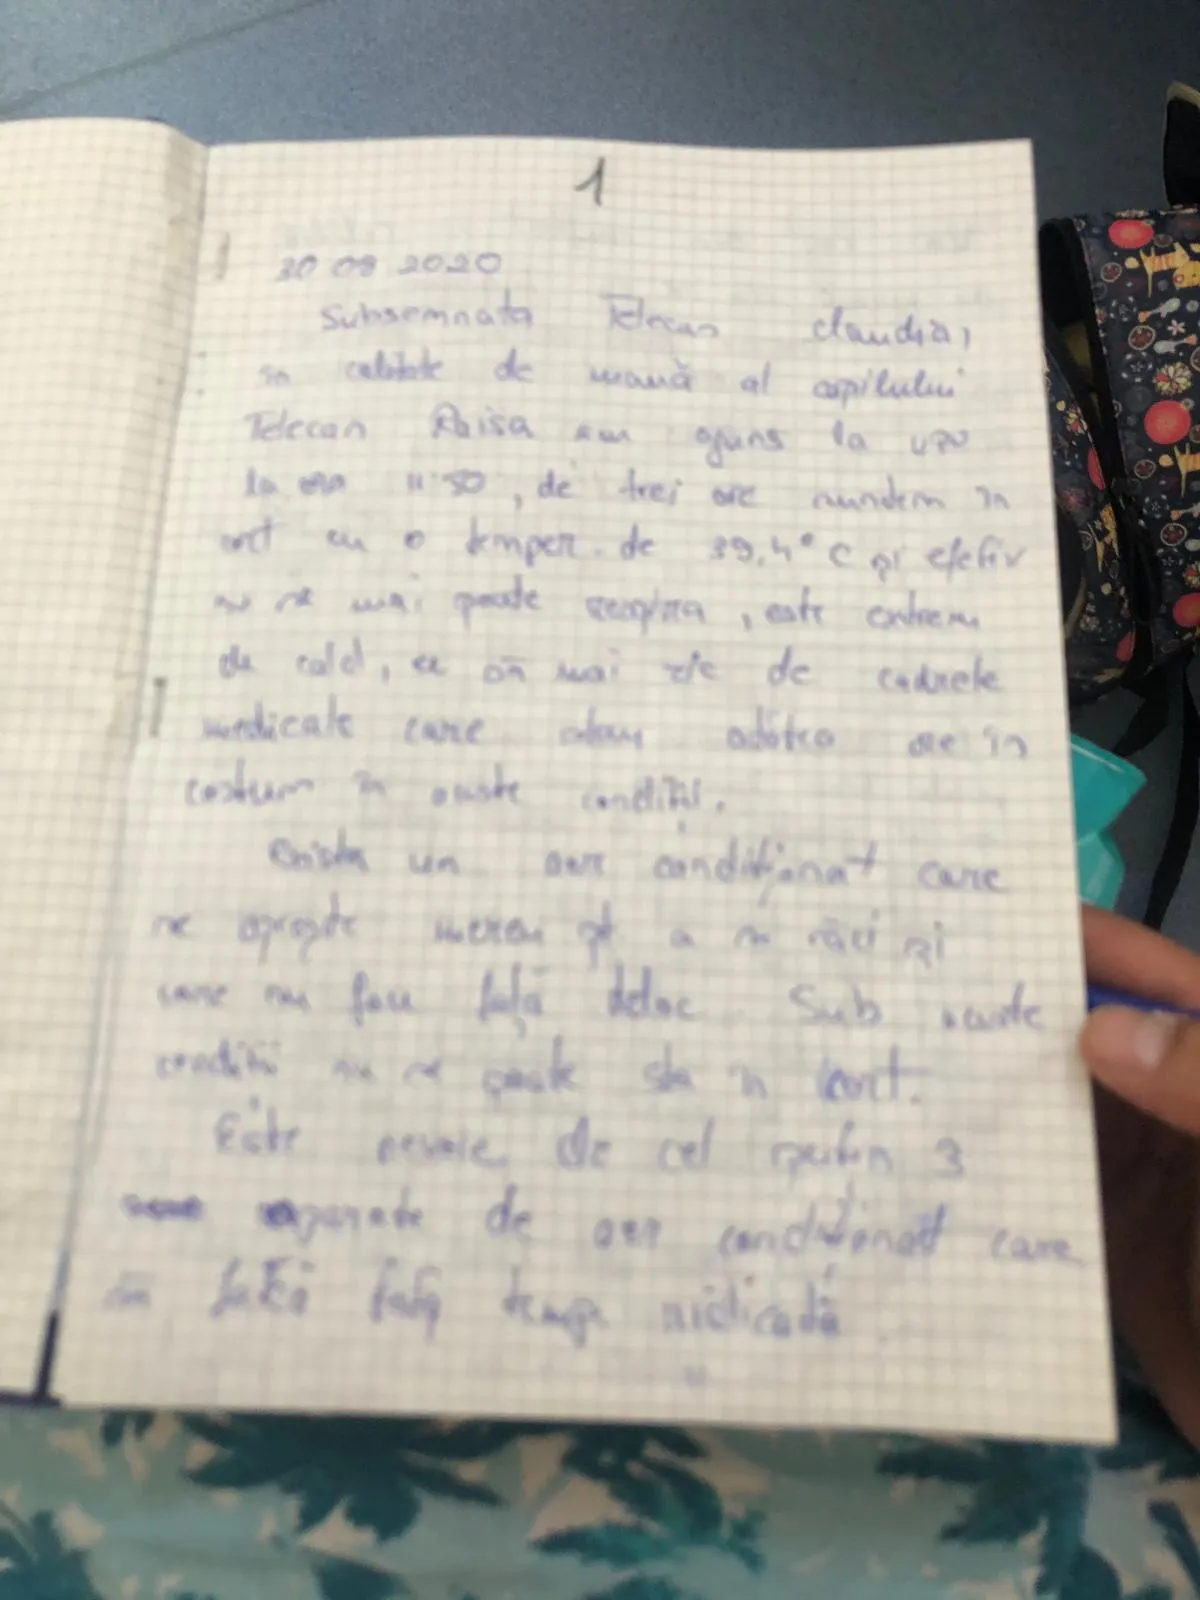 1
30 08 2020
Subsemnata Telecan Claudia,
în calitate de mamă al copilului
Telecan Raisa am ajuns la UPU
la ora 11:50, de trei ore suntem în
cort cu o temper. de 39,4° C și efectiv
nu se mai poate respira, este extrem
de cald, ce să mai zic de cadrele
medicale care stau atâtea ore în
costum în aceste condiții.
Există un aer condiționat care
se oprește mereu pt a se răci și
care nu face față deloc. Sub aceste
condiții nu se poate sta în cort.
Este nevoie de cel puțin 3
aparate de aer condiționat care
să facă față temp ridicată